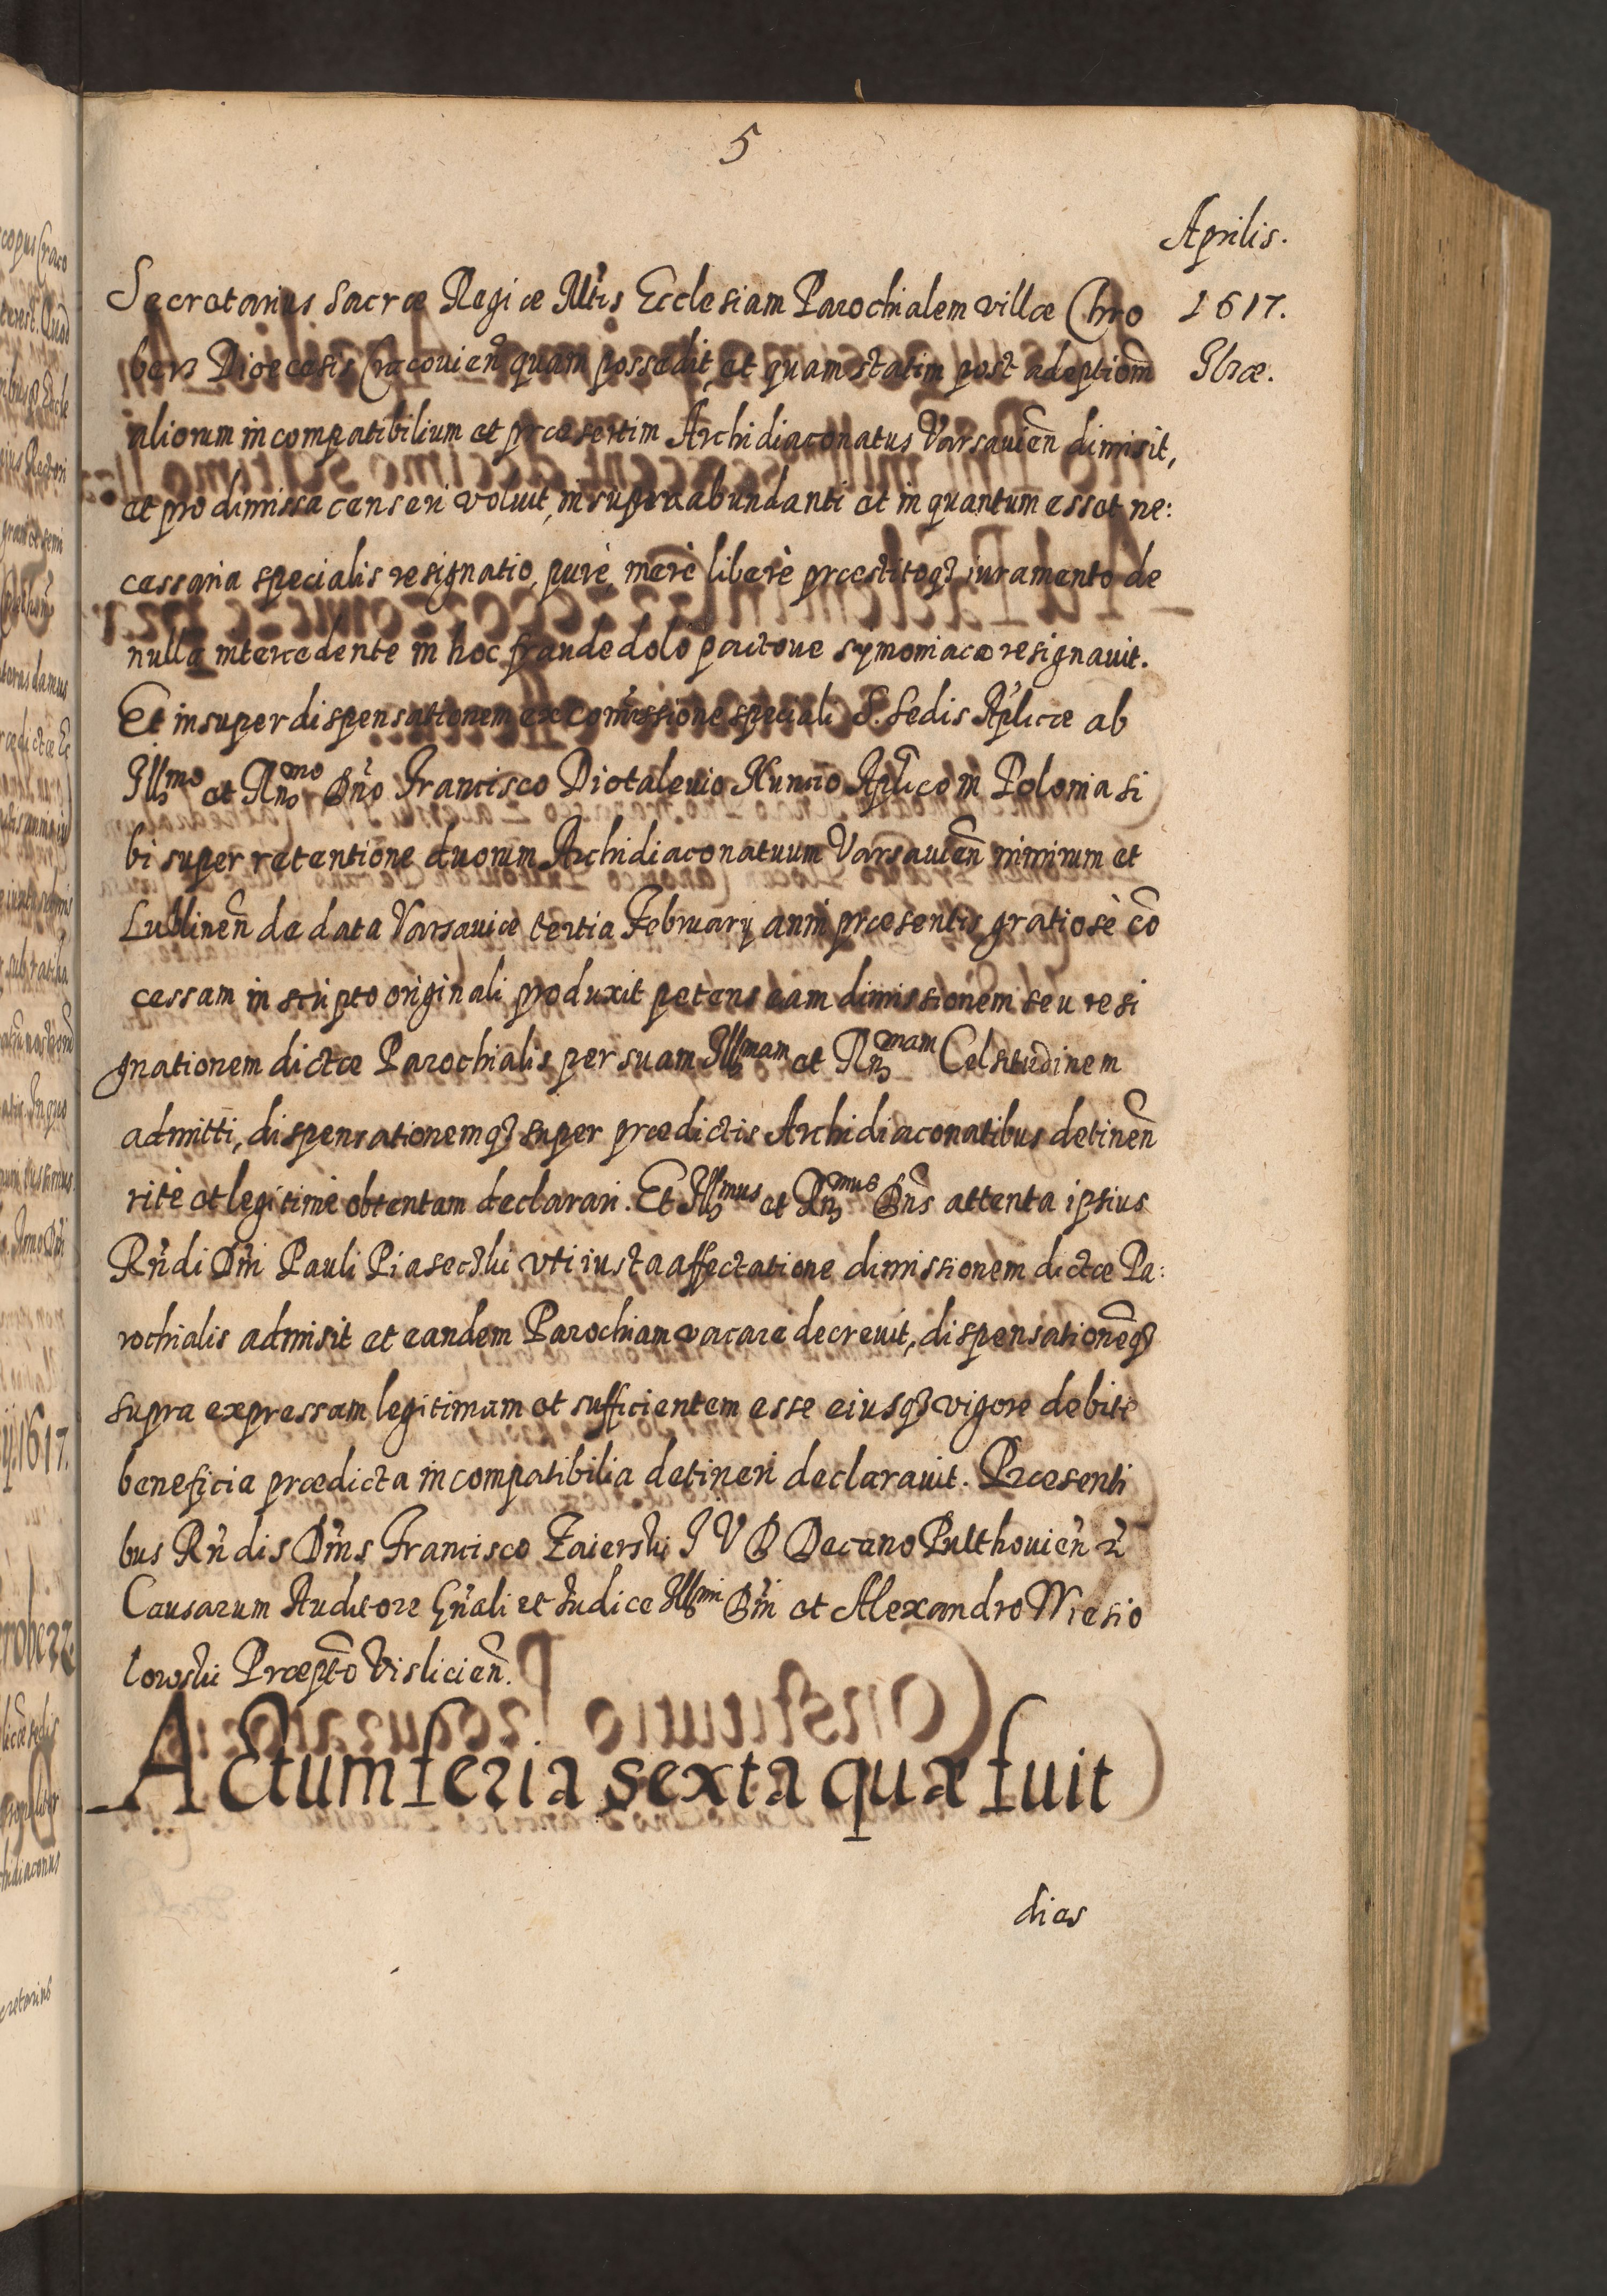 5
Aprilis.
1617.
Ilzæ.
Secretarius Sacræ Regiæ Mtis Ecclesiam Parochialem villæ Chro
berz Dioecesis Cracovien̄ quam possedit, et quam statim post adeptiom̄
aliorum incompatibilium et præsertim Archidiaconatus Varsauien̄ dimisit,
et pro dimissa censeri voluit, in supraabundanti et in quantum esset ne:
cessaria specialis resignatio, purè, merè liberè præstitoq₃ iuramento de
nulla intercedente in hoc fraude dolo pactoue symoniaco resignauit.
Et insuper dispensationem ex com̄issione speciali S. Sedis Aplicæ ab
Illmo et Rn̄mo Dn̄o Francisco Diotaleuio Nuncio Aplico in Polonia si
bi super retentione duorum Archidiaconatuum Varsauien̄ nimirum et
Lublinen̄ de data Varsauiæ tertia February anni præsentis gratiosè cō
cessam in scripto originali produxit petens eam dimissionem seu resi
gnationem dictæ Parochialis per suam Illmam et Rn̄mam Celsitudinem
admitti, dispensationemq₃ super prædictis Archidiaconatibus detinen̄
ritè et legitimè obtentam declarari. Et Illmus et Rn̄mus Dn̄s attenta ipsius
Rn̄di Dn̄i Pauli Piasecskii vti iusta affectatione dimissionem dictæ Pa:
rochialis admisit et eandem Parochiam vacare decreuit, dispensationēq₃
supra expressam legitimam et sufficientem esse eiusq₃ vigore debitè
beneficia prædicta incompatibilia detineri declarauit. Præsenti
bus Rn̄dis Dn̄is Francisco Zaierski I V D Decano Pulthouien̄
Causarum Auditore Gn̄ali et Iudice Illmi Dn̄i et Alexandro Wresio
lowski Præpto Visliciẽn.
Actum feria sexta quæ fuit
dies